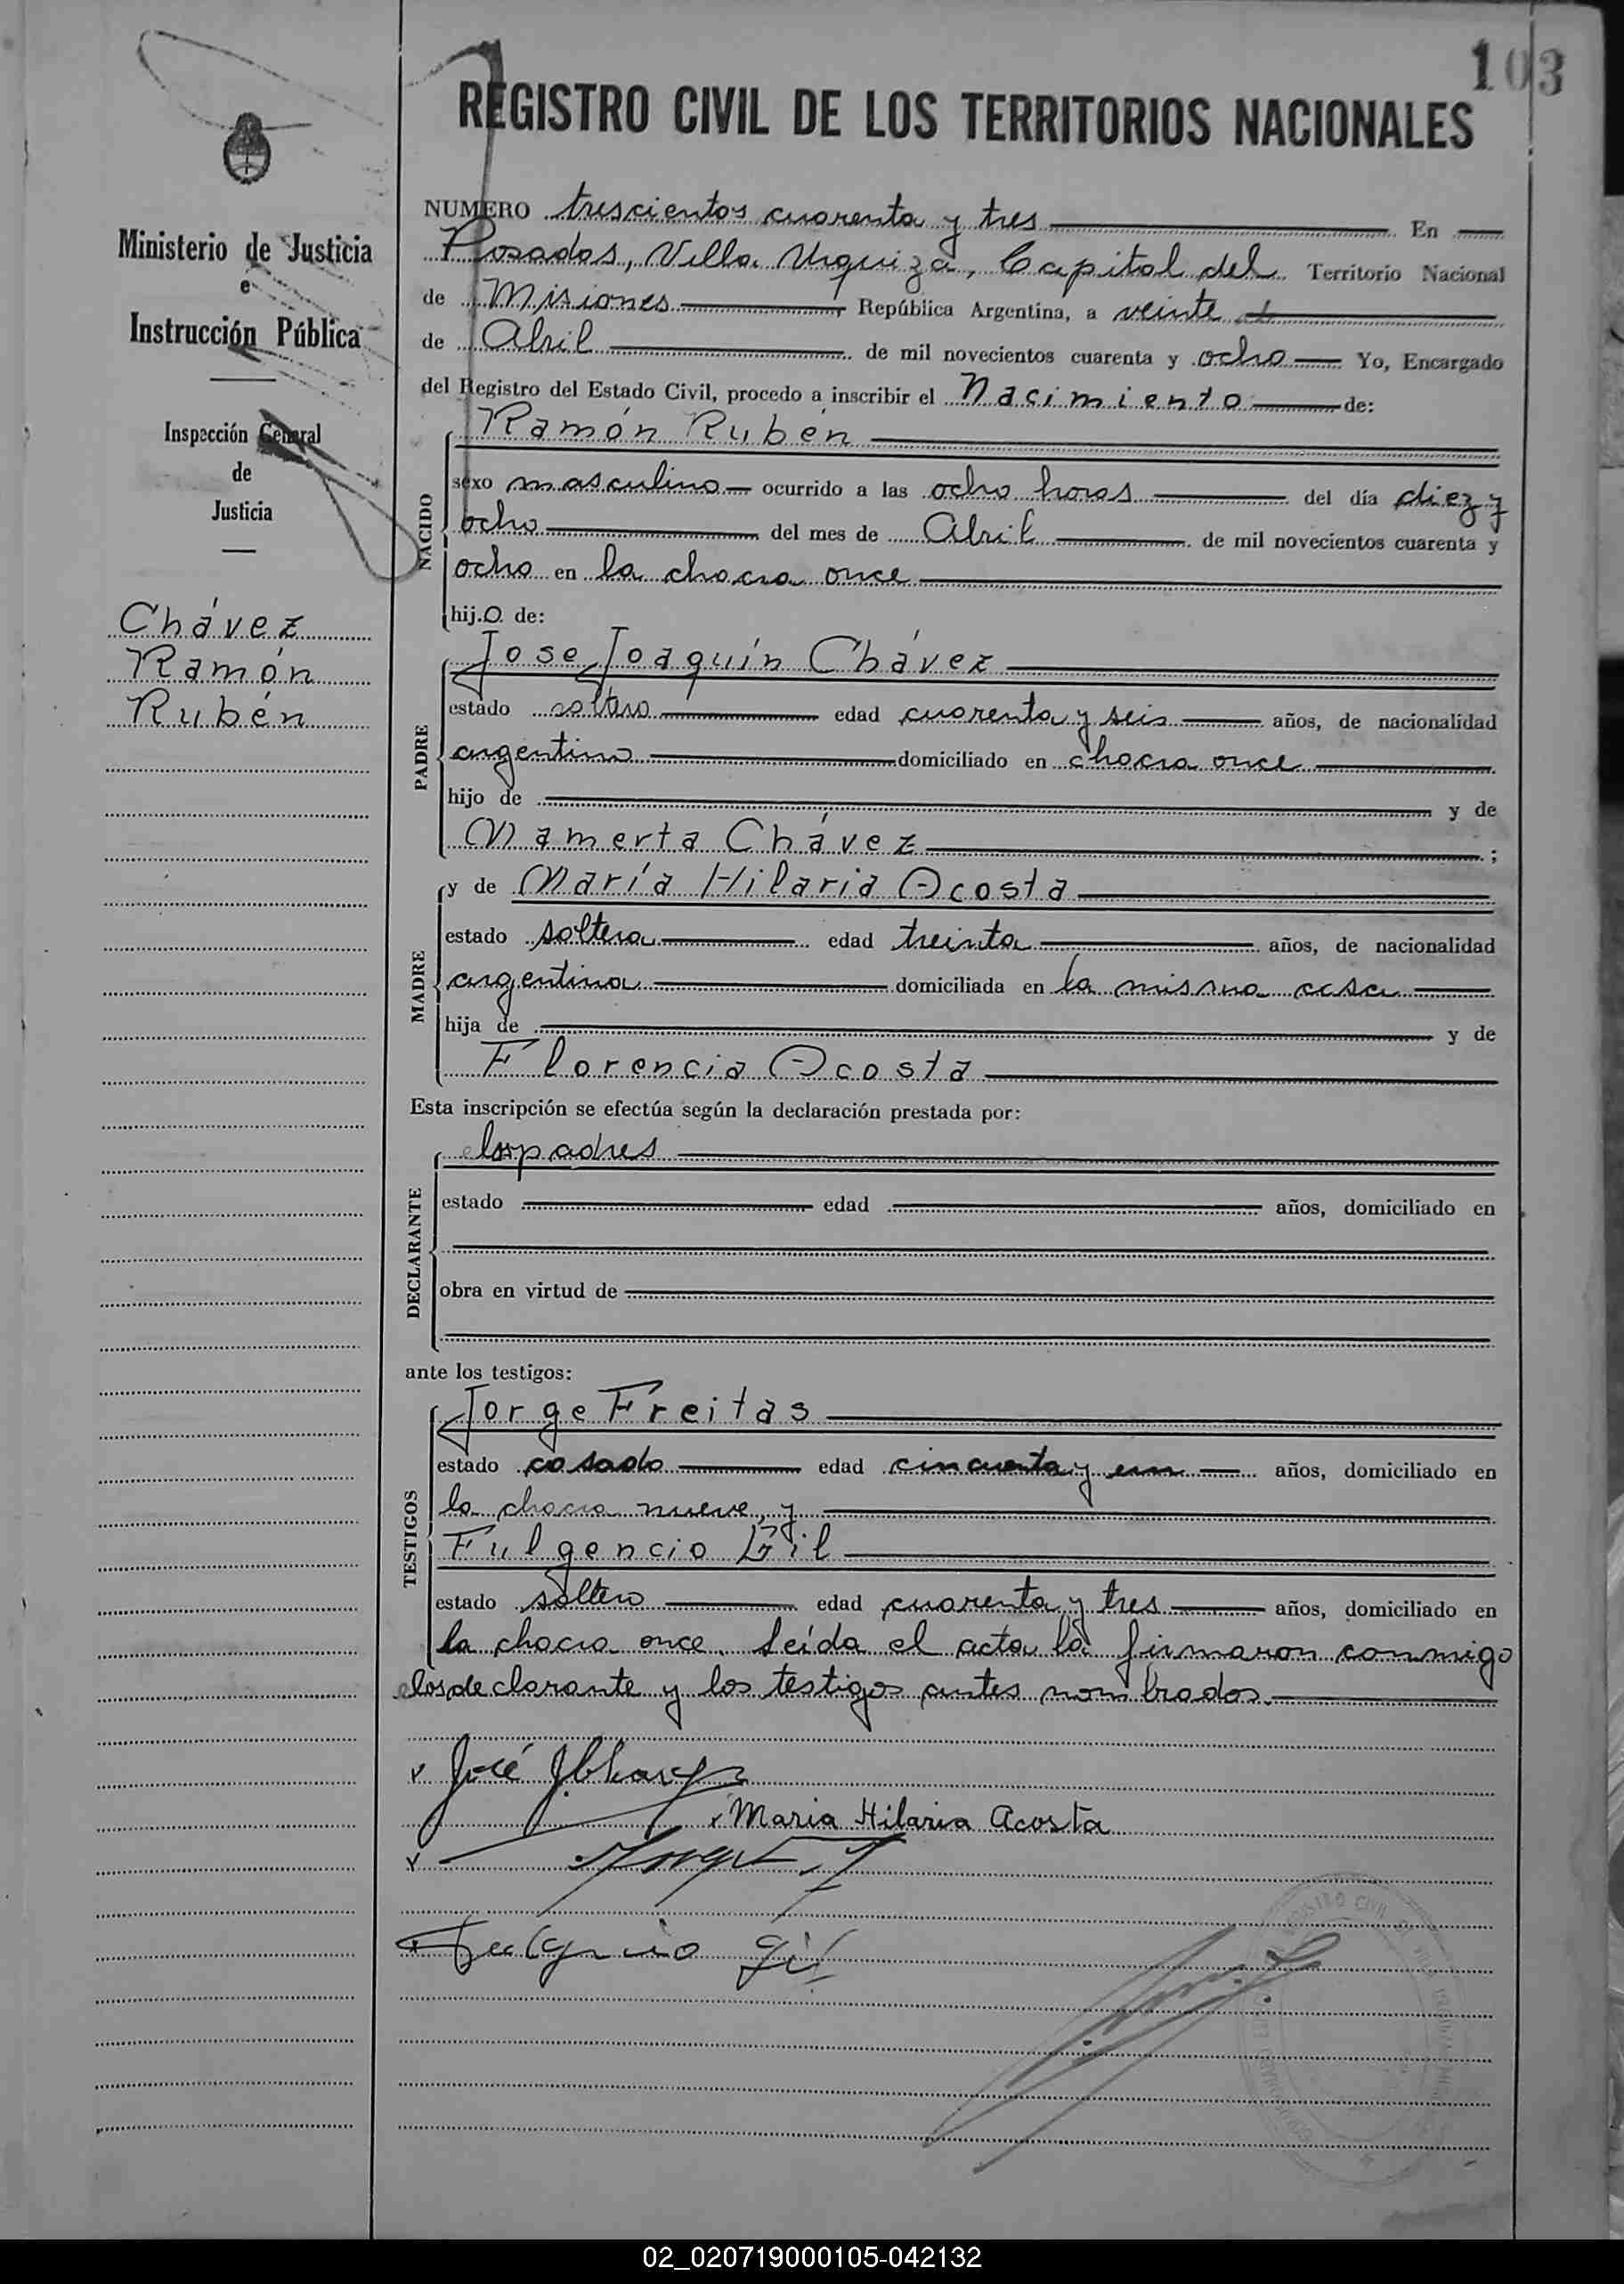 103
REGISTRO CIVIL DE LOS TERRITORIOS NACIONALES
Ministerio de Justicia
e
Instrucción Pública
Inspección General
de
Justicia
Chávez
Ramón
Rubén
NUMERO trescientos cuarenta y tres En
Posadas, Villa Urquiza, Capital del Territorio Nacional
de Misiones República Argentina, a veinte
de Abril de mil novecientos cuarenta y ocho Yo, Encargado
del Registro del Estado Civil, procedo a inscribir el Nacimiento de:
NACIDO
Ramón Rubén
sexo masculino ocurrido a las ocho horas del día diez y
ocho del mes de Abril de mil novecientos cuarenta y
ocho en la chacra once
hijo de:
PADRE
Jose Joaquín Chávez
estado soltero edad cuarenta y seis años, de nacionalidad
argentino domiciliado en chacra once
hijo de y de
Mamerta Chávez ;
MADRE
y de María Hilaria Acosta
estado soltera edad treinta años, de nacionalidad
argentina domiciliada en la misma casa
hija de y de
Florencia Acosta
Esta inscripción se efectúa según la declaración prestada por:
DECLARANTE
los padres
estado edad años, domiciliado en
obra en virtud de
ante los testigos:
TESTIGOS
Jorge Freitas
estado casado edad cincuenta y un años, domiciliado en
la chacra nueve, y
Fulgencio Gil
estado soltero edad cuarenta y tres años, domiciliado en
la chacra once. Leída el acta la firmaron conmigo
los declarante y los testigos antes nombrados.
José J. Chavez
Maria Hilaria Acosta
Fulgencio Gil
REGISTRO CIVIL DE VILLA
02_020719000105-042132